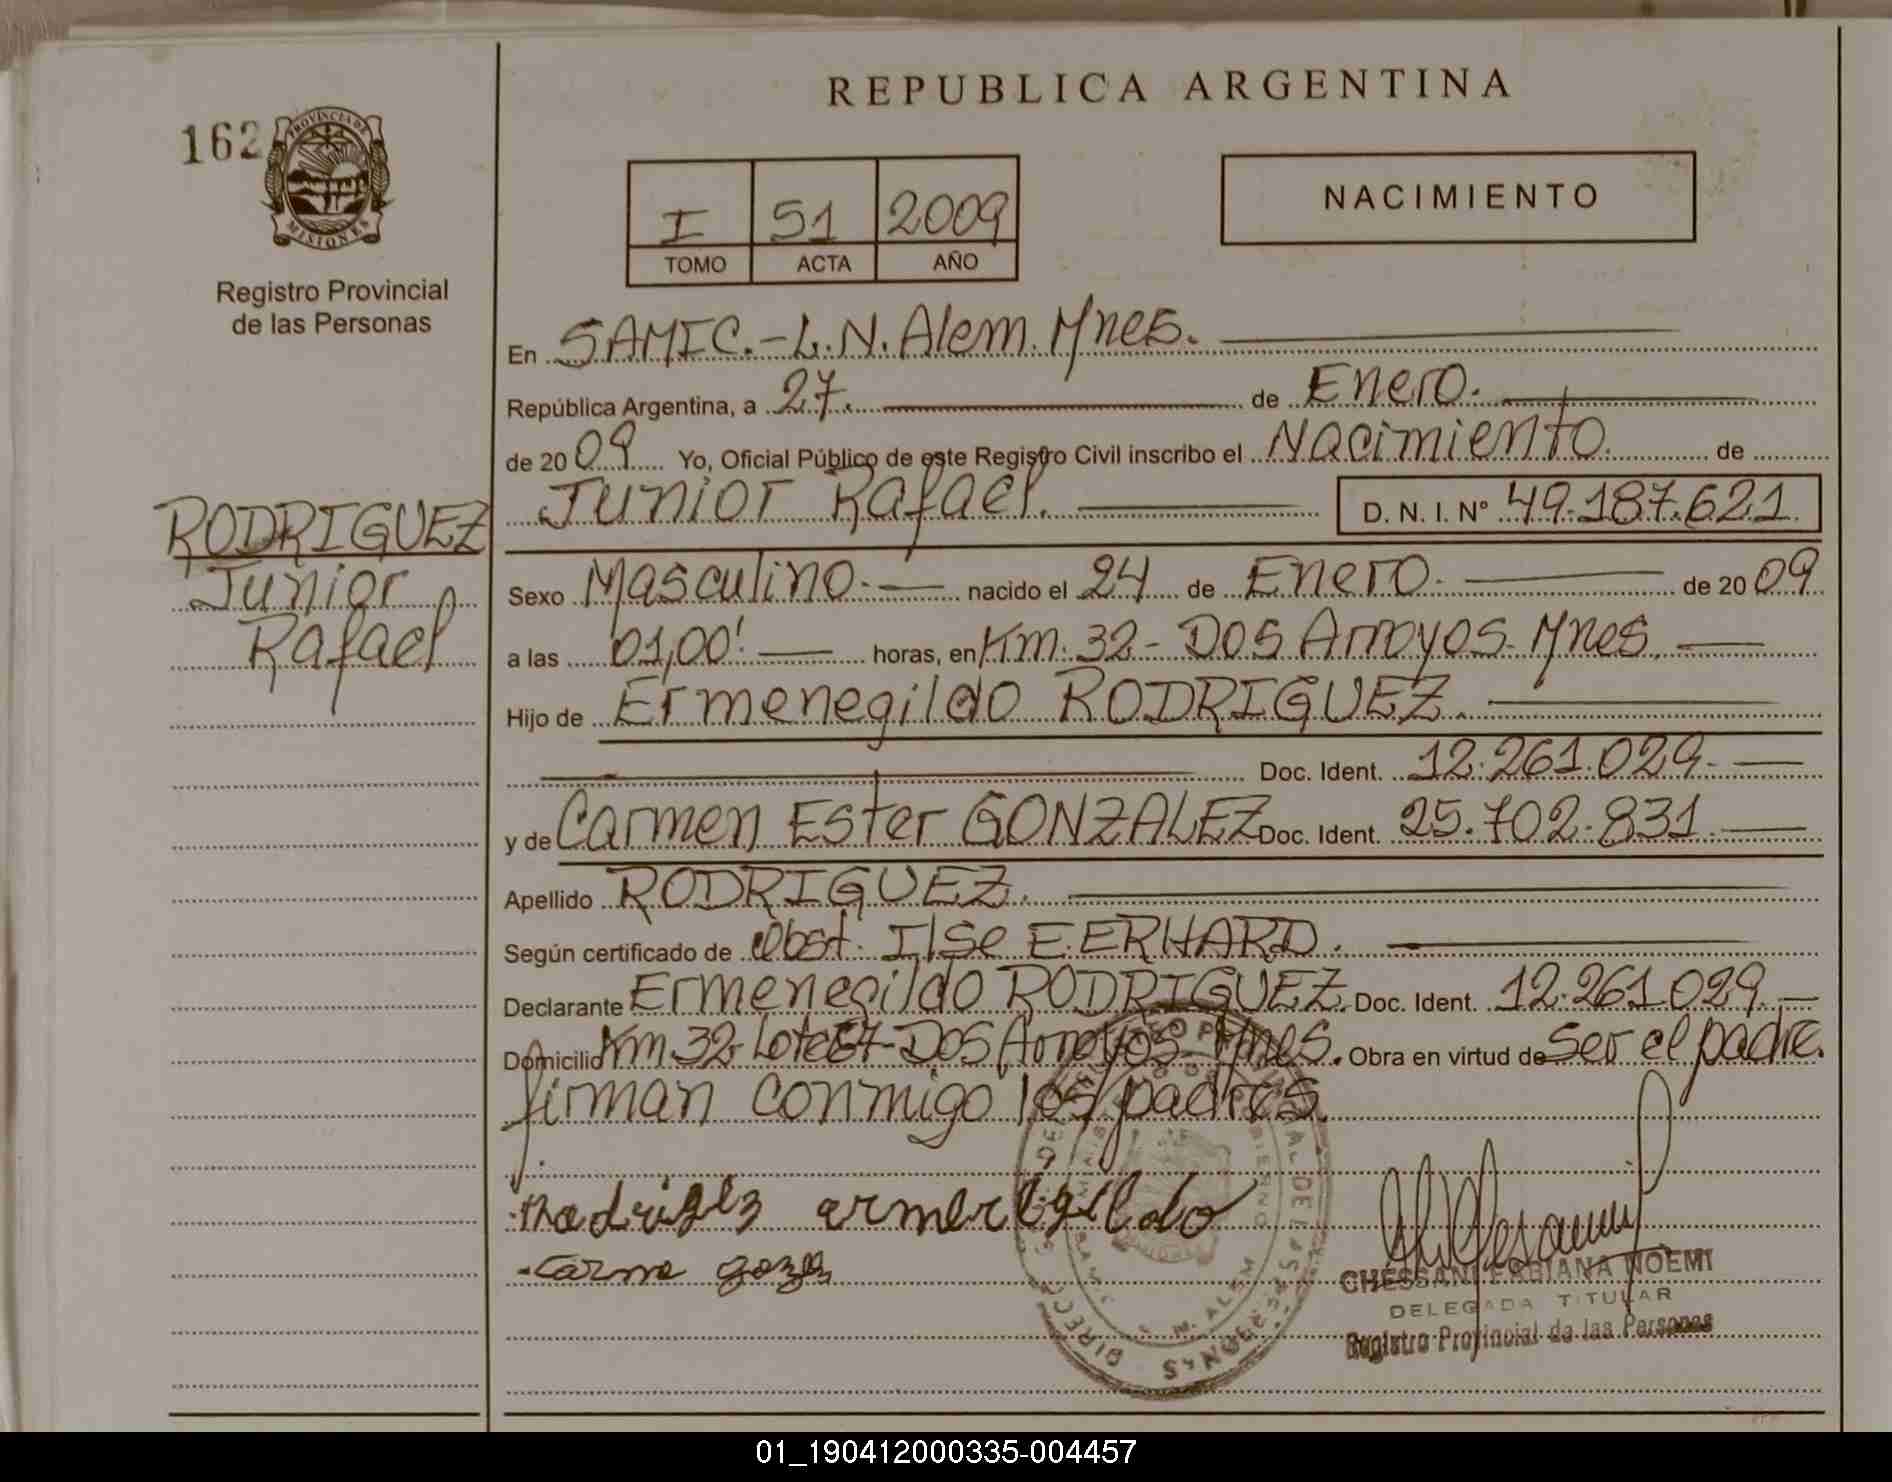 REPUBLICA ARGENTINA
162
PROVINCIA DE
MISIONES
Registro Provincial
de las Personas
I 51 2009
TOMO ACTA AÑO
NACIMIENTO
En SAMIC.-L.N. Alem. Mnes.
República Argentina, a 27. de Enero.
de 2009 Yo, Oficial Público de este Registro Civil inscribo el Nacimiento. de
Junior Rafael. D. N. I. N° 49.187.621
RODRIGUEZ
Junior
Rafael
Sexo Masculino. nacido el 24 de Enero. de 2009
a las 01,00' horas, en Km. 32 - Dos Arroyos - Mnes.
Hijo de Ermenegildo RODRIGUEZ.
Doc. Ident. 12.261.029.
y de Carmen Ester GONZALEZ Doc. Ident. 25.702.831
Apellido RODRIGUEZ.
Según certificado de Obst. Ilse E. ERHARD.
Declarante Ermenegildo RODRIGUEZ. Doc. Ident. 12.261.029.
Domicilio Km 32- Lote - Dos Arroyos - Mnes. Obra en virtud de ser el padre.
firman conmigo los padres.
CHESSANI FABIANA NOEMI
DELEGADA TITULAR
Registro Provincial de las Personas
01_190412000335-004457